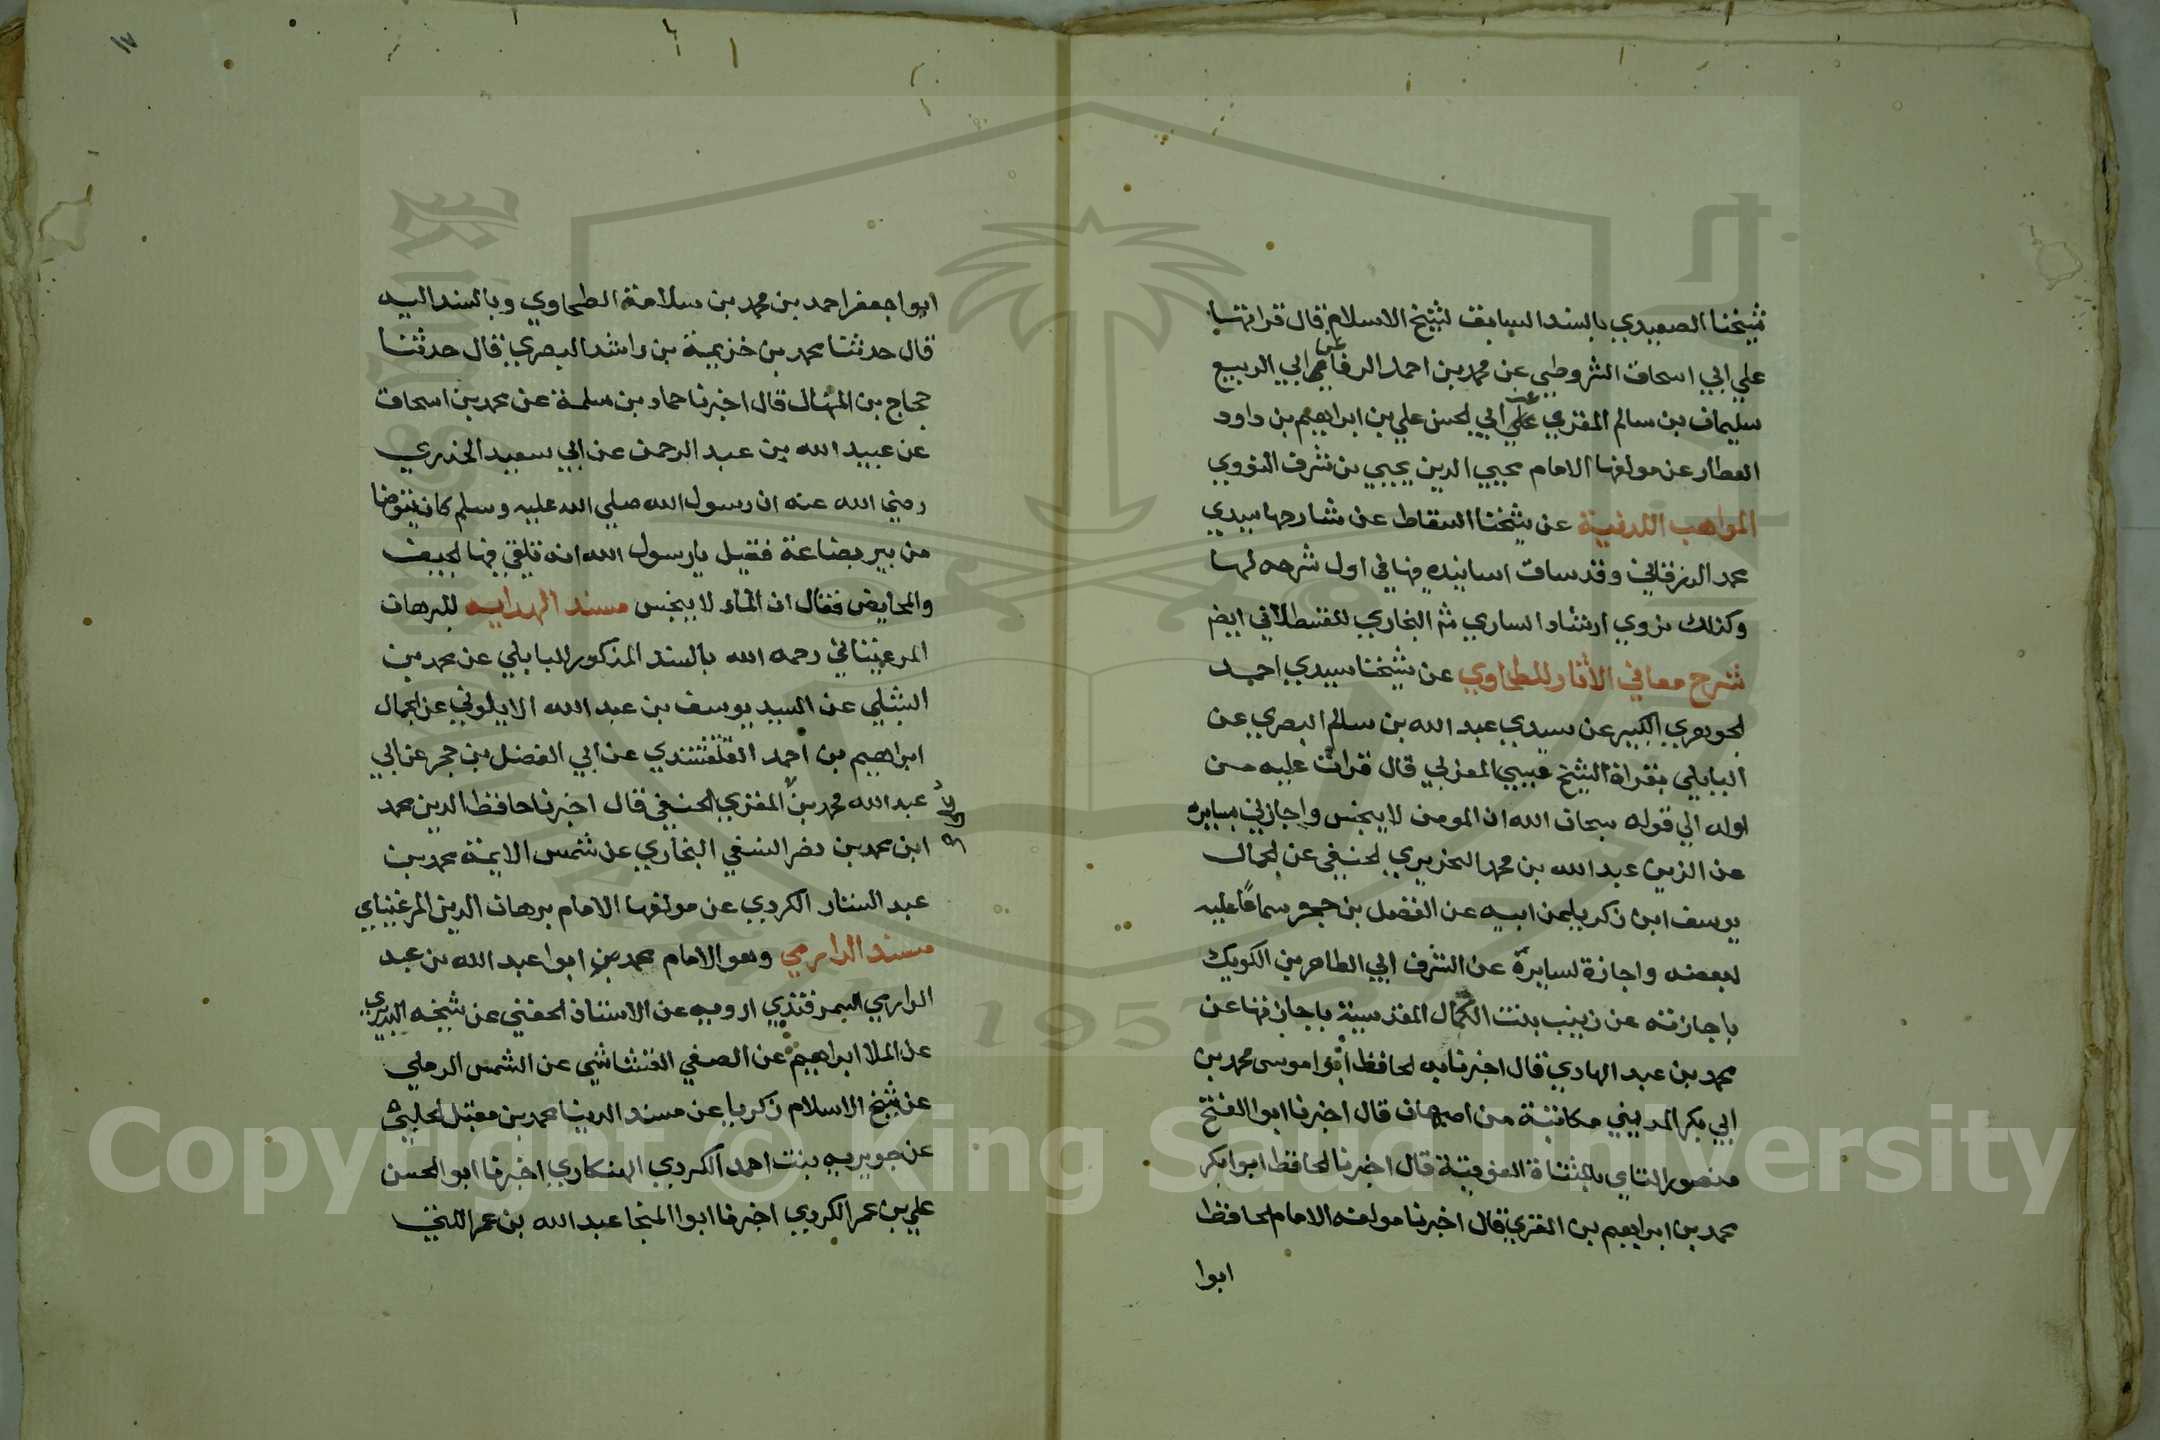 شيخنا الصعيدي بالسند السابق لشيخ الاسلام قال قرانها
علي ابي اسحاق الشروطي عن محمد بن احمد الرفا عن ابي الربيع
سليمان بن سالم الغزي عن ابي الحسن علي بن ابراهيم بن داود
العطار عن مولفها الامام محيي الدين يحيي بن شرف النووي
المواهب اللدنية عن شيخنا السقاط عن شارحها سيدي
محمد الزرقاني وقد ساق اسانيده فيها في اول شرحه لها
وكذلك نروي ارشاد الساري شرح البخاري للقسطلاني ايض
شرح معاني الأثار للطحاوي عن شيخنا سيدي احمد
الجوهري الكبير عن سيدي عبد الله بن سالم البصري عن
البابلي بقراة الشيخ عيسي المغربي قال قرات عليه من
اوله الي قوله سبحان الله ان المومن لا ينجس واجازني بسايره
عن الزين عبد الله بن محمد النحريري الحنفي عن الجمال
يوسف ابن زكريا عن ابيه عن الفضل بن حجر سماعًا عليه
لبعضه واجازة لسايره عن الشرف ابي الطاهر بن الكويك
باجازته عن زينب بنت الكمال المقدسية باجازتها عن
محمد بن عبد الهادي قال اخبرنا به الحافظ ابوا موسى محمد بن
ابي بكر المديني مكاتبة من اصبهان قال اخبرنا ابوا الفتح
منصور التاي بالمثناة الفوقية قال اخبرنا الحافظ ابوا بكر
محمد بن ابراهيم بن المقري قال اخبرنا مولفه الامام الحافظ
ابوا
١٧
ابوا جعفر احمد بن محمد بن سلامة الطحاوي وبالسند اليه
قال حدثنا محمد بن خزيمة بن راشد البصري قال حدثنا
حجاج بن المنهال قال اخبرنا حماد بن سلمة عن محمد بن اسحاق
عن عبيد الله بن عبد الرحمن عن ابي سعيد الخدري
رضي الله عنه ان رسول الله صلي الله عليه وسلم كان يتوضا
من بير بضاعة فقيل يا رسول الله انه تلقي فيها الجيف
والمحايض فقال ان الماء لا ينجس مسند الهدايه للبرهان
المرغيناني رحمه الله بالسند المذكور للبابلي عن محمد بن
الشلبي عن السيد يوسف بن عبد الله الايلوني عن الجمال
ابراهيم بن احمد القلقشندي عن ابي الفضل بن حجر عن ابي
عبد الله محمد بن المقري الحنفي قال اخبرنا حافظ الدين محمد
ابن محمد بن نصر النسفي البخاري عن شمس الايمة محمد بن
عبد الستار الكردي عن مولفها الامام برهان الدين المرغيناني
مسند الدارمي وهو الامام محمد بن ابوا عبد الله بن عبد
الدارمي السمرقندي ارويه عن الاستاذ الحفني عن شيخه البديري
عن الملا ابراهيم عن الصفي القشاشي عن الشمس الرملي
عن شيخ الاسلام زكريا عن مسند الدنيا محمد بن مقبل الحلبي
عن جويريه بنت احمد الكردي الهنكاري اخبرنا ابو الحسن
علي بن عمر الكردي اخبرنا ابوا المنجا عبد الله بن عمر اللتي
Copyright © King Saud University
1957